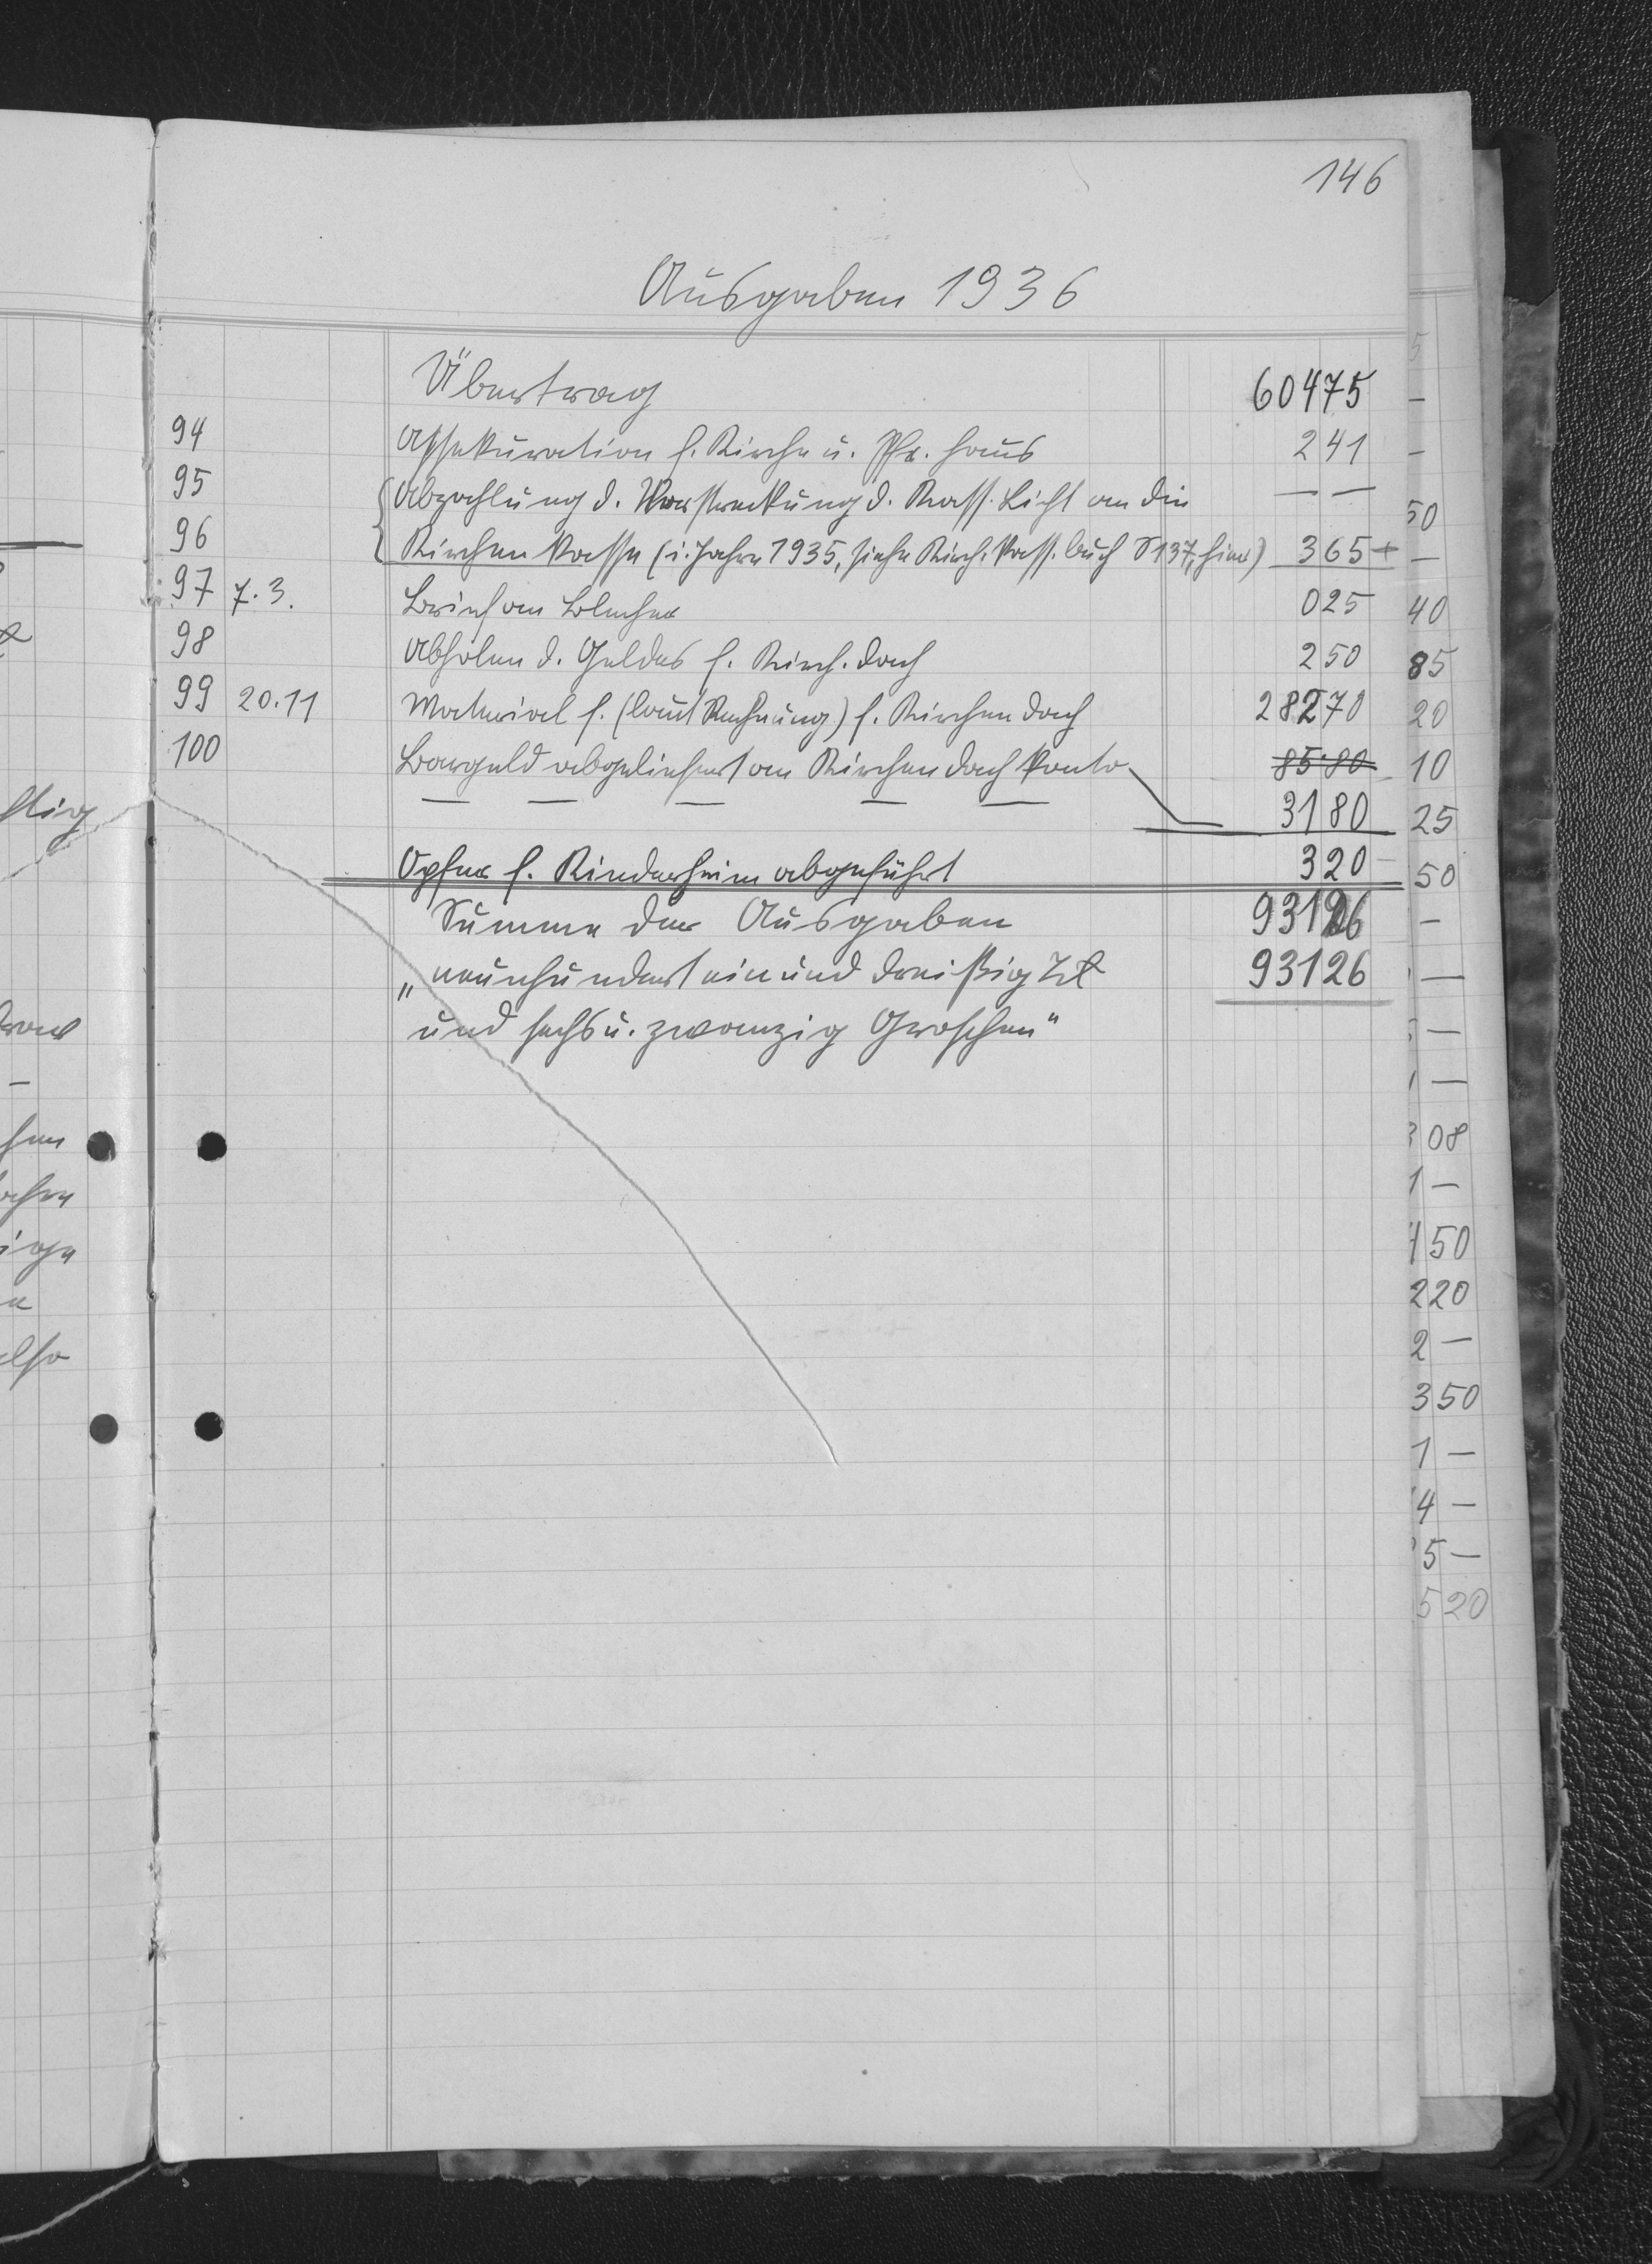 146
Ausgaben 1936
Übertrag 60475
94 Assekuration f. Kirche u. Pfr. haus 241
95 Abzahlung d. Vorstreckung d. Kass. Licht an die — —
96 Kirchenkasse (i. Jahre 1935, siehe Kirch. Kass. buch S 137, hier) 365
97 7.3. Brief an Blecher 025
98 Abholen d. Geldes f. Kirch. dach 250
99 20.11 Material f. (laut Rechnung) f. Kirchendach 28270
100 Bargeld abgeliefert an Kirchendachkonto 85.80
— — — — — 3180
Opfer f. Kinderheim abgeführt 320
Summe der Ausgaben 93126
„neunhundert ein und dreißig Zł 93126
und sechs u. zwanzig Groschen"